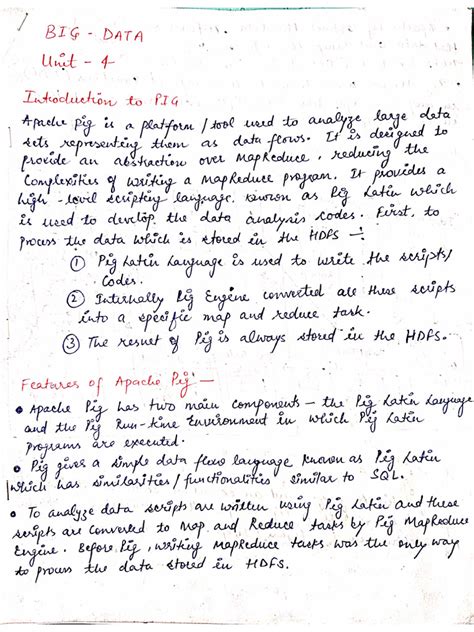 BIG - DATA
Unit - 4
Introduction to PIG
Apache pig is a platform / tool used to analyze large data
sets representing them as data flows. It is designed to
provide an abstraction over MapReduce, reducing the
Complexities of writing a MapReduce program. It provides a
high - level scripting language, known as Pig Latin which
is used to develop the data analysis codes. First, to
process the data which is stored in the HDFS :-
① Pig Latin Language is used to write the scripts/
Codes.
② Internally Pig Engine converted all these scripts
into a specific map and reduce task.
③ The result of Pig is always stored in the HDFS.
Features of Apache Pig :-
• Apache Pig has two main components - the Pig Latin Language
and the Pig Run-time Environment in which Pig Latin
programs are executed.
• Pig gives a simple data flow language known as Pig Latin
which has similarities/functionalities similar to SQL.
• To analyze data scripts are written using Pig Latin and these
scripts are converted to Map and Reduce tasks by Pig MapReduce
Engine. Before Pig, writing MapReduce tasks was the only way
to process the data stored in HDFS.